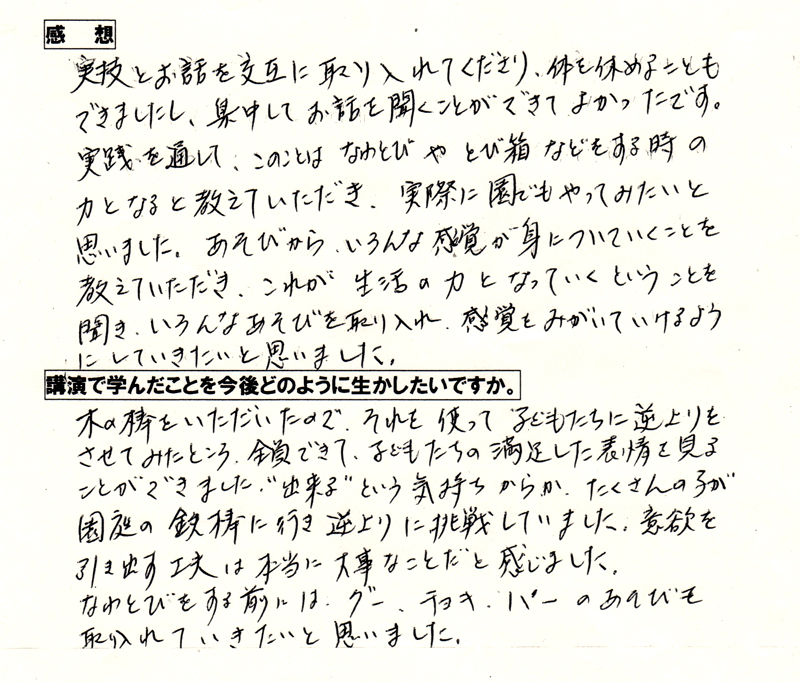 感想
実技とお話を交互に取り入れてくださり、体を休めることも
できましたし、集中してお話を聞くことができてよかったです。
実践を通して、このことはなわとびやとび箱などをする時の
力となると教えていただき、実際に園でもやってみたいと
思いました。あそびから、いろんな感覚が身についていくことを
教えていただき、これが生活の力となっていくということを
聞き、いろんなあそびを取り入れ、感覚をみがいていけるよう
にしていきたいと思いました。
講演で学んだことを今後どのように生かしたいですか。
木の棒をいただいたので、それを使って子どもたちに逆上りを
させてみたところ、全員できて、子どもたちの満足した表情を見る
ことができました。“出来る”という気持ちからか、たくさんの子が
園庭の鉄棒に行き逆上りに挑戦していました。意欲を
引き出す工夫は本当に大事なことだと感じました。
なわとびをする前には、グー、チョキ、パーのあそびも
取入れていきたいと思いました。